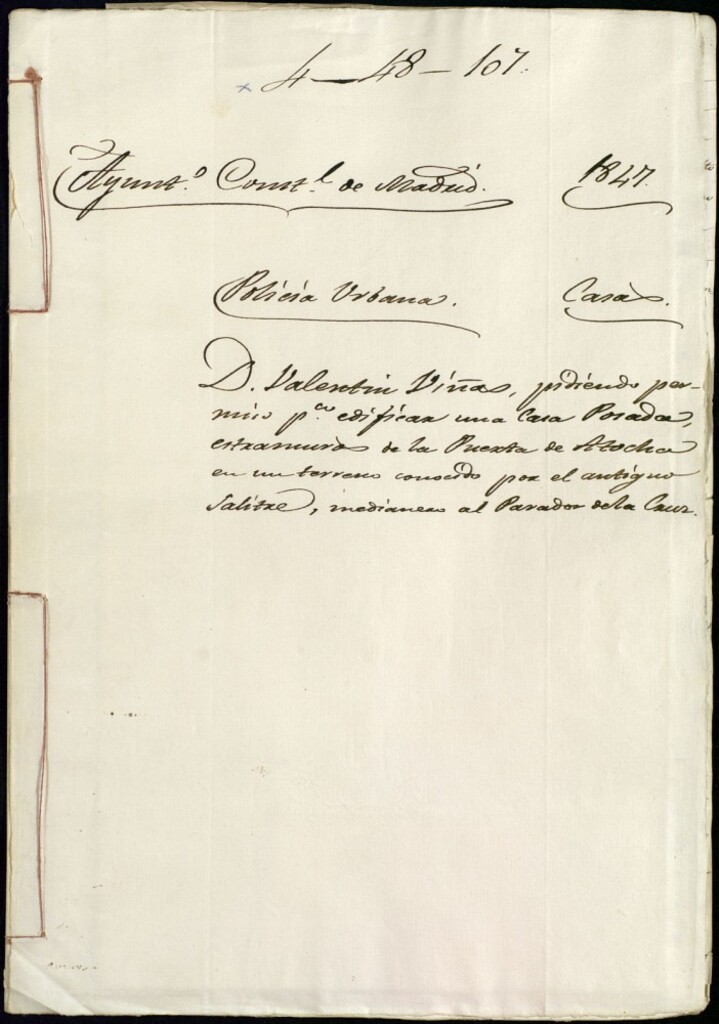 4-48-107.
Ayunt.º Const.l de Madrid. 1847.
Policía Urbana. Casas.
D. Valentin Viñas, pidiendo per-
miso p.ª edificar una Casa Posada,
estramuros de la Puerta de Atocha
en un terreno conocido por el antiguo
Salitre, medianero al Parador de la Cruz.